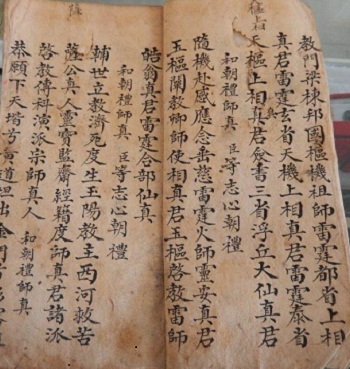 教門梁棟邦國樞機祖師雷霆都省上相
真君雷霆玄省天機上相真君雷霆泰省
天樞上相真君僉書三省浮丘大仙真君
和朝禮師真 臣等志心朝禮
隨機赴感應念垂慈雷霆火師靈安真君
玉樞闡教卿師使相真君玉樞啓教雷師
皓翁真君雷霆合部仙真
和朝禮師真 臣等志心朝禮
輔世立教濟死度生玉陽教主西河救苦
薩公真人靈寶監齋經籍度師真君諸派
啓教傳科演派宗師真人 和朝禮師真
恭願下天